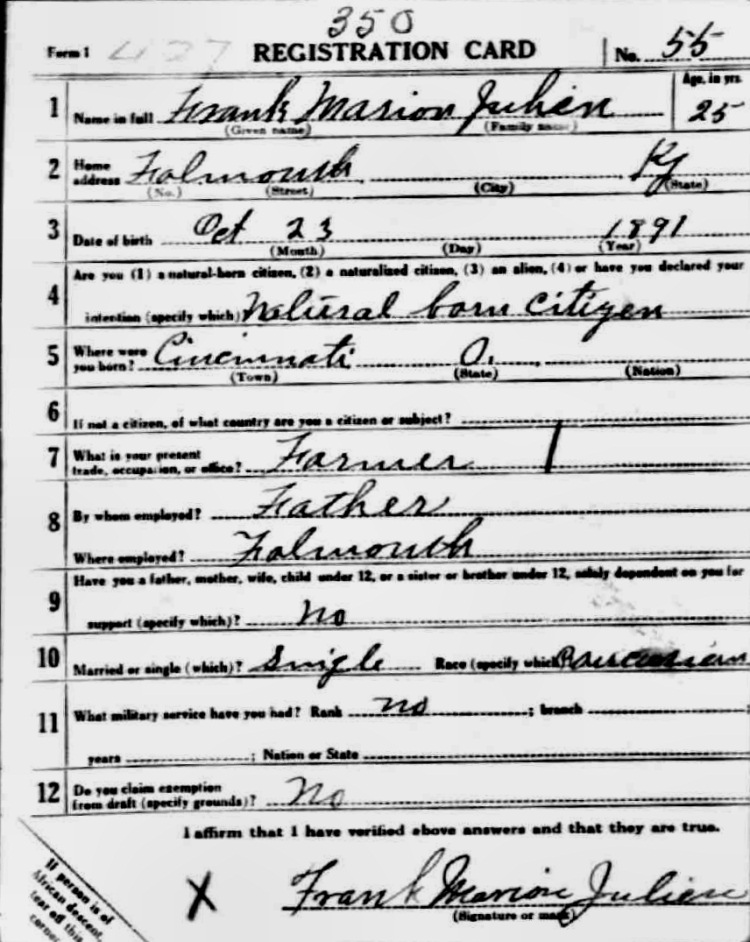 350
Form 1 427 REGISTRATION CARD No. 55
1 Name in full Frank Marion Julien Age, in yrs. 25
(Given name) (Family name)
2 Home address Falmouth Ky
(No.) (Street) (City) (State)
3 Date of birth Oct 23 1891
(Month) (Day) (Year)
4 Are you (1) a natural-born citizen, (2) a naturalized citizen, (3) an alien, (4) or have you declared your
intention (specify which)? Natural born citizen
5 Where were you born? Cincinnati O.
(Town) (State) (Nation)
6 If not a citizen, of what country are you a citizen or subject?
7 What is your present trade, occupation, or office? Farmer
8 By whom employed? Father
Where employed? Falmouth
9 Have you a father, mother, wife, child under 12, or a sister or brother under 12, solely dependent on you for
support (specify which)? no
10 Married or single (which)? Single Race (specify which)? Caucasian
11 What military service have you had? Rank no ; branch ;
years ; Nation or State
12 Do you claim exemption from draft (specify grounds)? No
I affirm that I have verified above answers and that they are true.
X Frank Marion Julien
(Signature or mark)
If person is of
African descent,
tear off this
corner